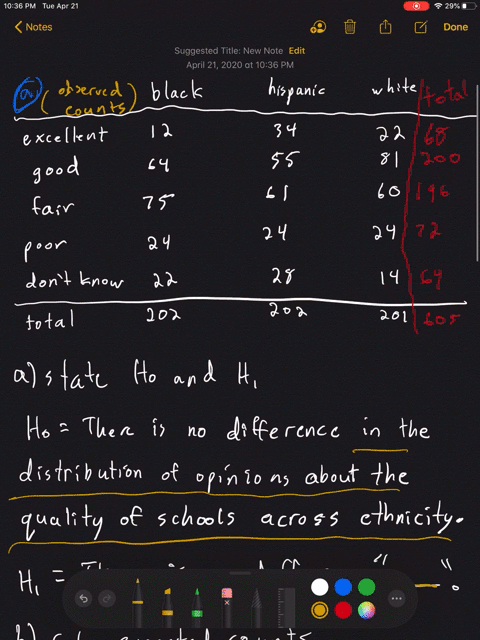 10:36 PM Tue Apr 21
29%
Notes
Done
Suggested Title: New Note Edit
April 21, 2020 at 10:36 PM
(observed counts) black hispanic white total
excellent 12 34 22 68
good 64 55 81 200
fair 75 61 60 196
poor 24 24 24 72
don't know 22 28 14 69
total 202 202 201 605
a) state H0 and H1
H0 = There is no difference in the
distribution of opinions about the
quality of schools across ethnicity.
H1 = " ".